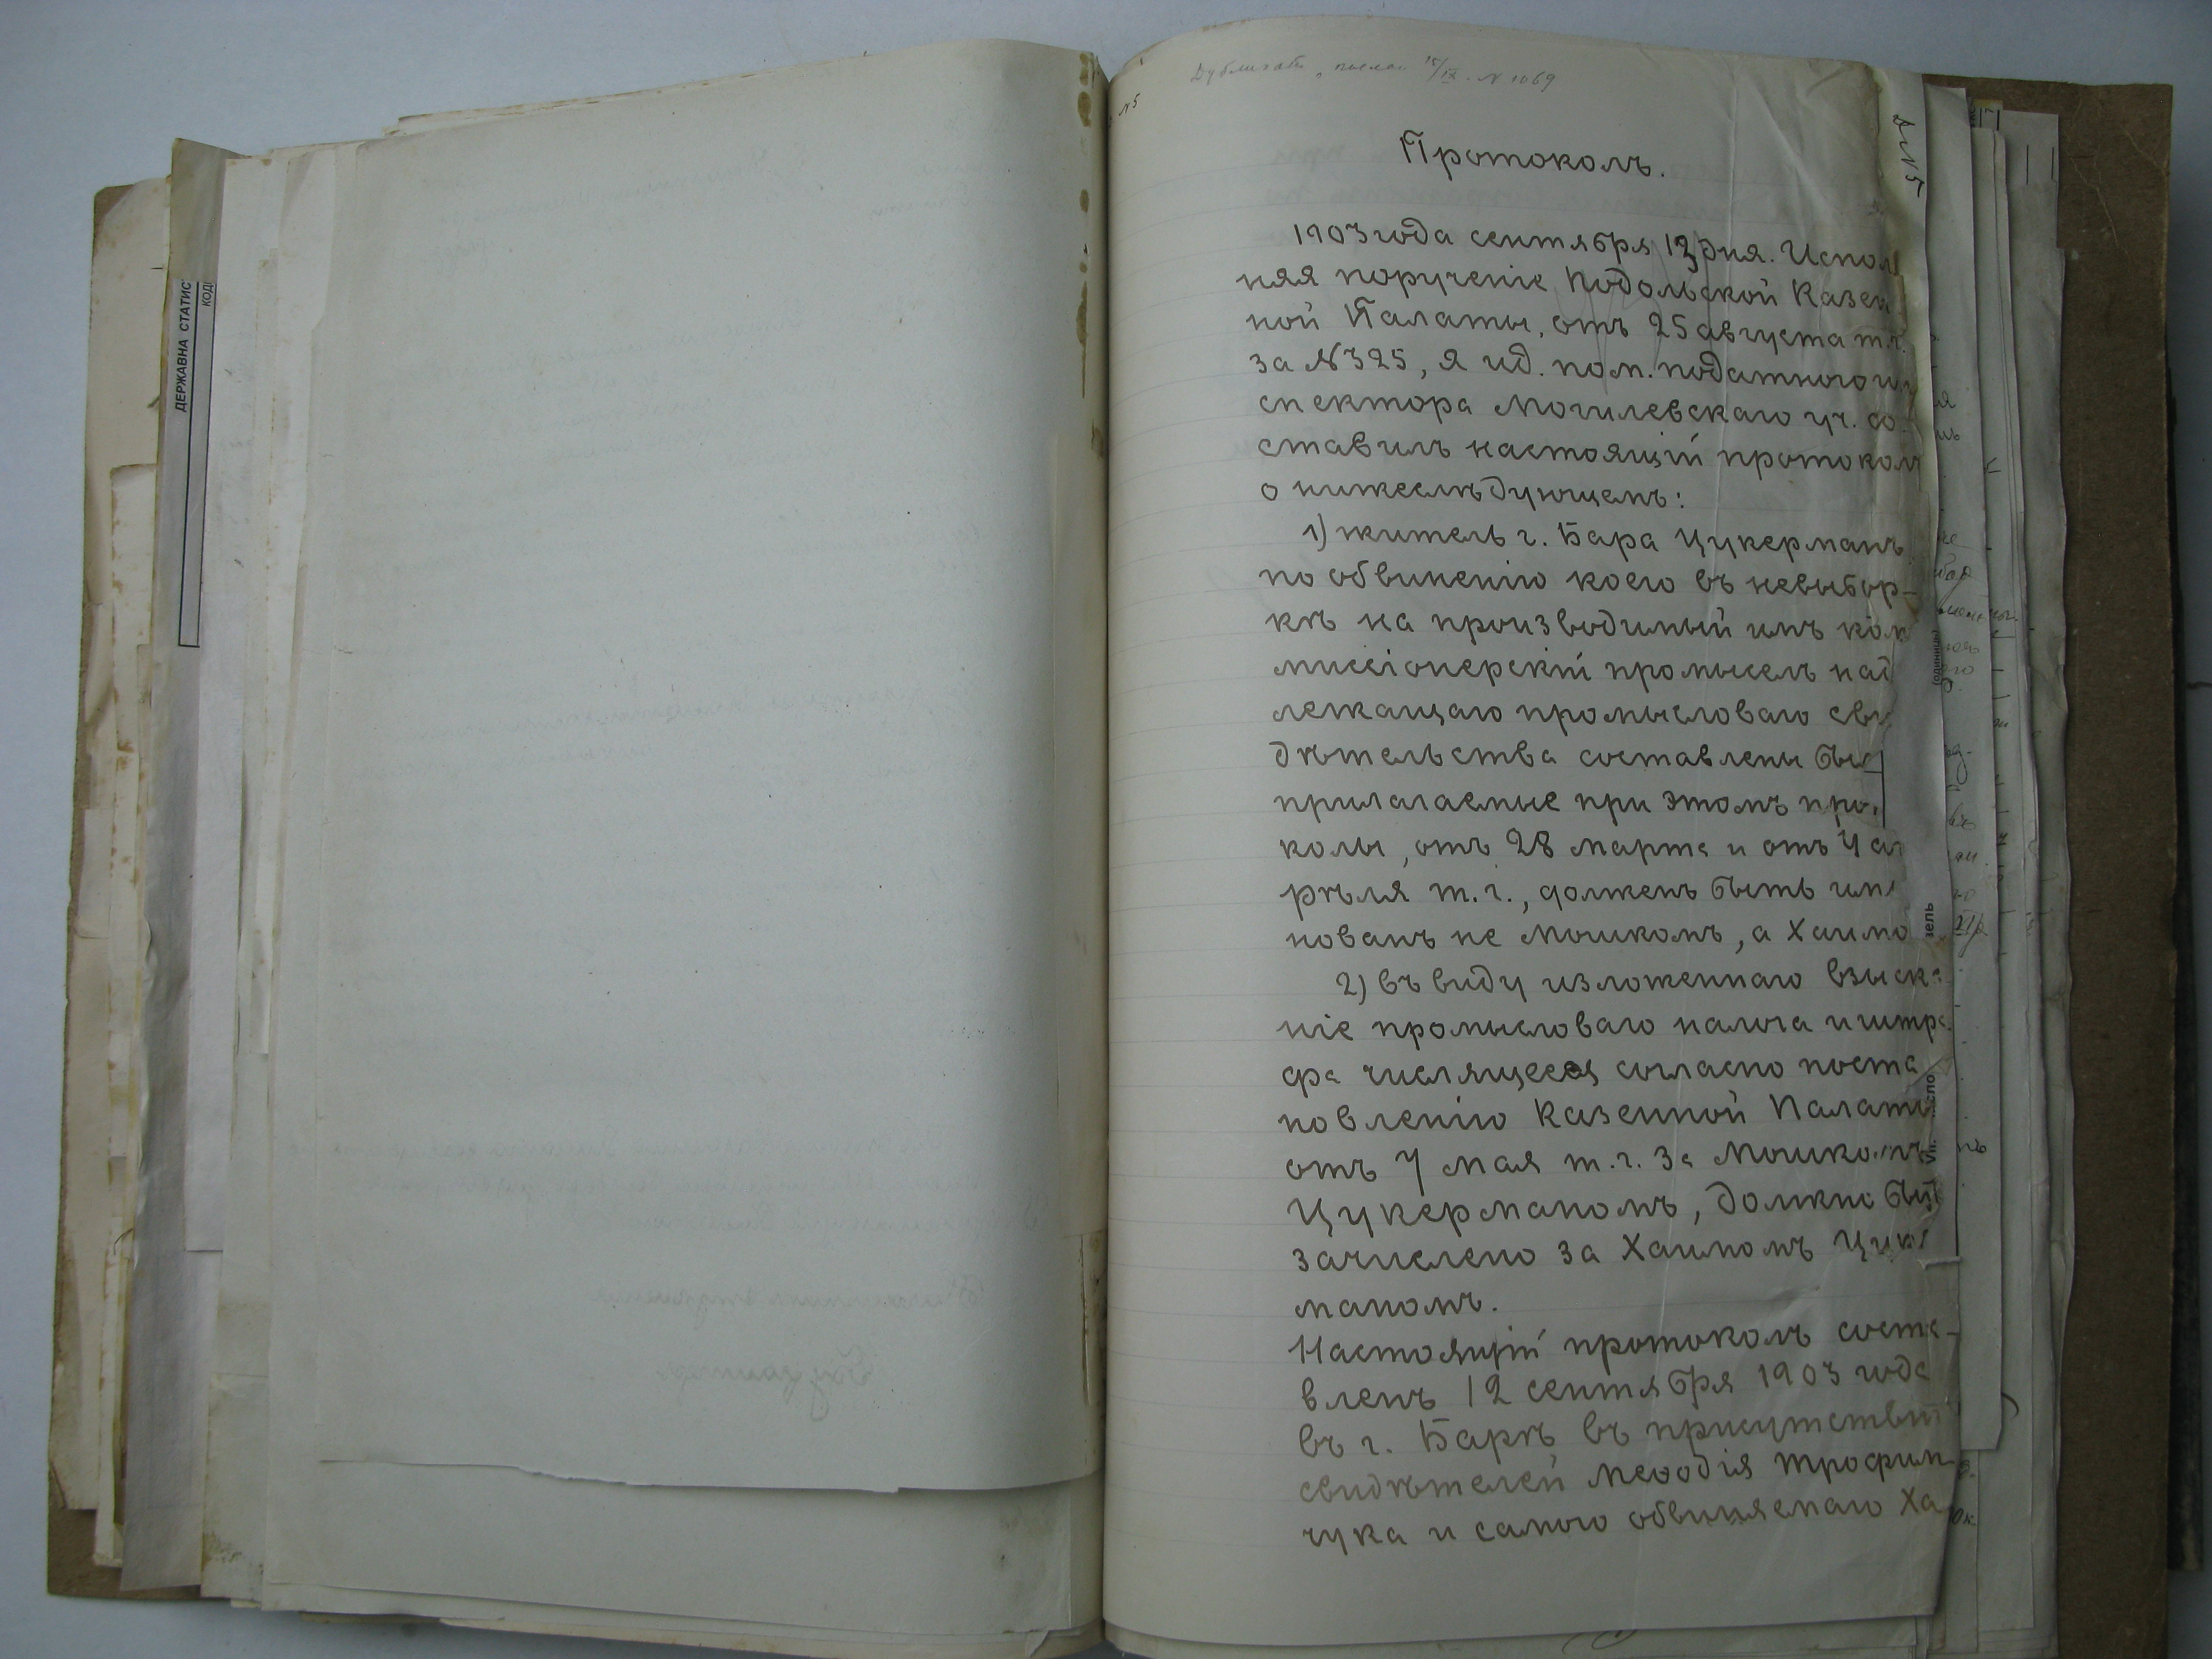 ДЕРЖАВНА СТАТИС
КОД
Дубликатъ 15/IX. N 1069
N5
N5
Протоколъ.
1903 года сентября 12 дня. Испол
няя порученіе Подольской Казен
ной Палаты, отъ 25 августа т.г.
за N325, я ид. пом. податного ин
спектора Могилевскаго уч. со-
ставилъ настоящій протоколъ
о нижеслѣдующемъ:
1) житель г. Бара Цукерманъ
по обвиненію коего въ невыбор-
кѣ на производимый имъ ком
миссіонерскій промыселъ над
лежащаго промысловаго сви
дѣтельства составлены бы
прилагаемые при этомъ про
колы, отъ 28 марта и отъ 4 ап
рѣля т.г., долженъ быть име
нованъ не Мошкомъ, а Хаимо
2) въ виду изложеннаго взыска
ніе промысловаго налога и штра
фа числящееся согласно поста
новленію Казенной Палаты
отъ 7 мая т.г. за Мошкомъ
Цукерманомъ, должно быть
зачислено за Хаимомъ Цук
маномъ.
Настоящій протоколъ соста-
вленъ 12 сентября 1903 года
въ г. Барѣ въ присутствіи
свидѣтелей Меѳодія Трофим
чука и самого обвиняемаго Ха